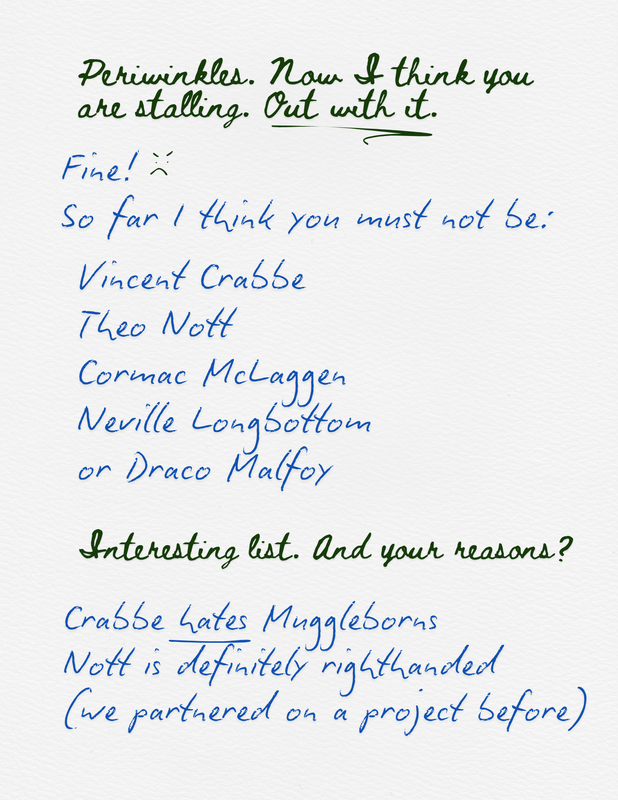 Periwinkles. Now I think you
are stalling. Out with it.
Fine!
So far I think you must not be:
Vincent Crabbe
Theo Nott
Cormac McLaggen
Neville Longbottom
or Draco Malfoy
Interesting list. And your reasons?
Crabbe hates Muggleborns
Nott is definitely righthanded
(we partnered on a project before)